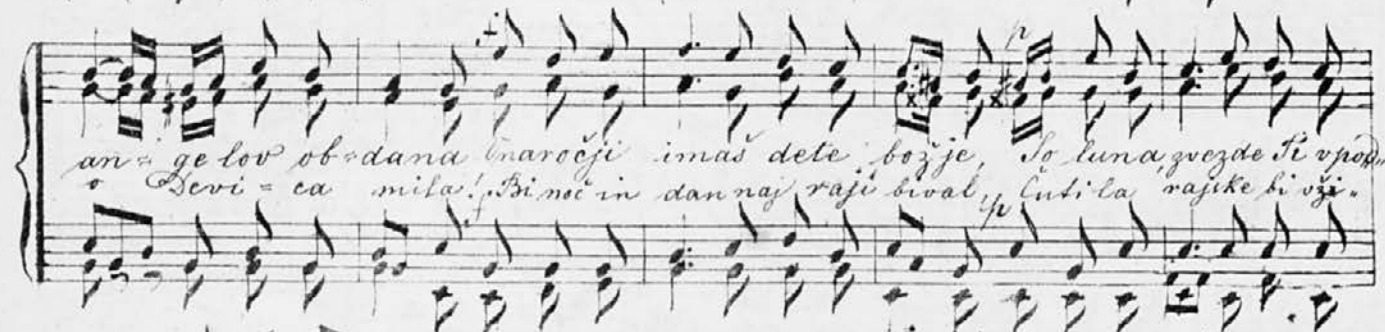 an = ge lov ob = dana V naročji imaš dete božje, So luna, zvezde Ti v pod=
o Devi = ca mila! Bi noč in dan naj raji bival, Čutila rajske bi uži =